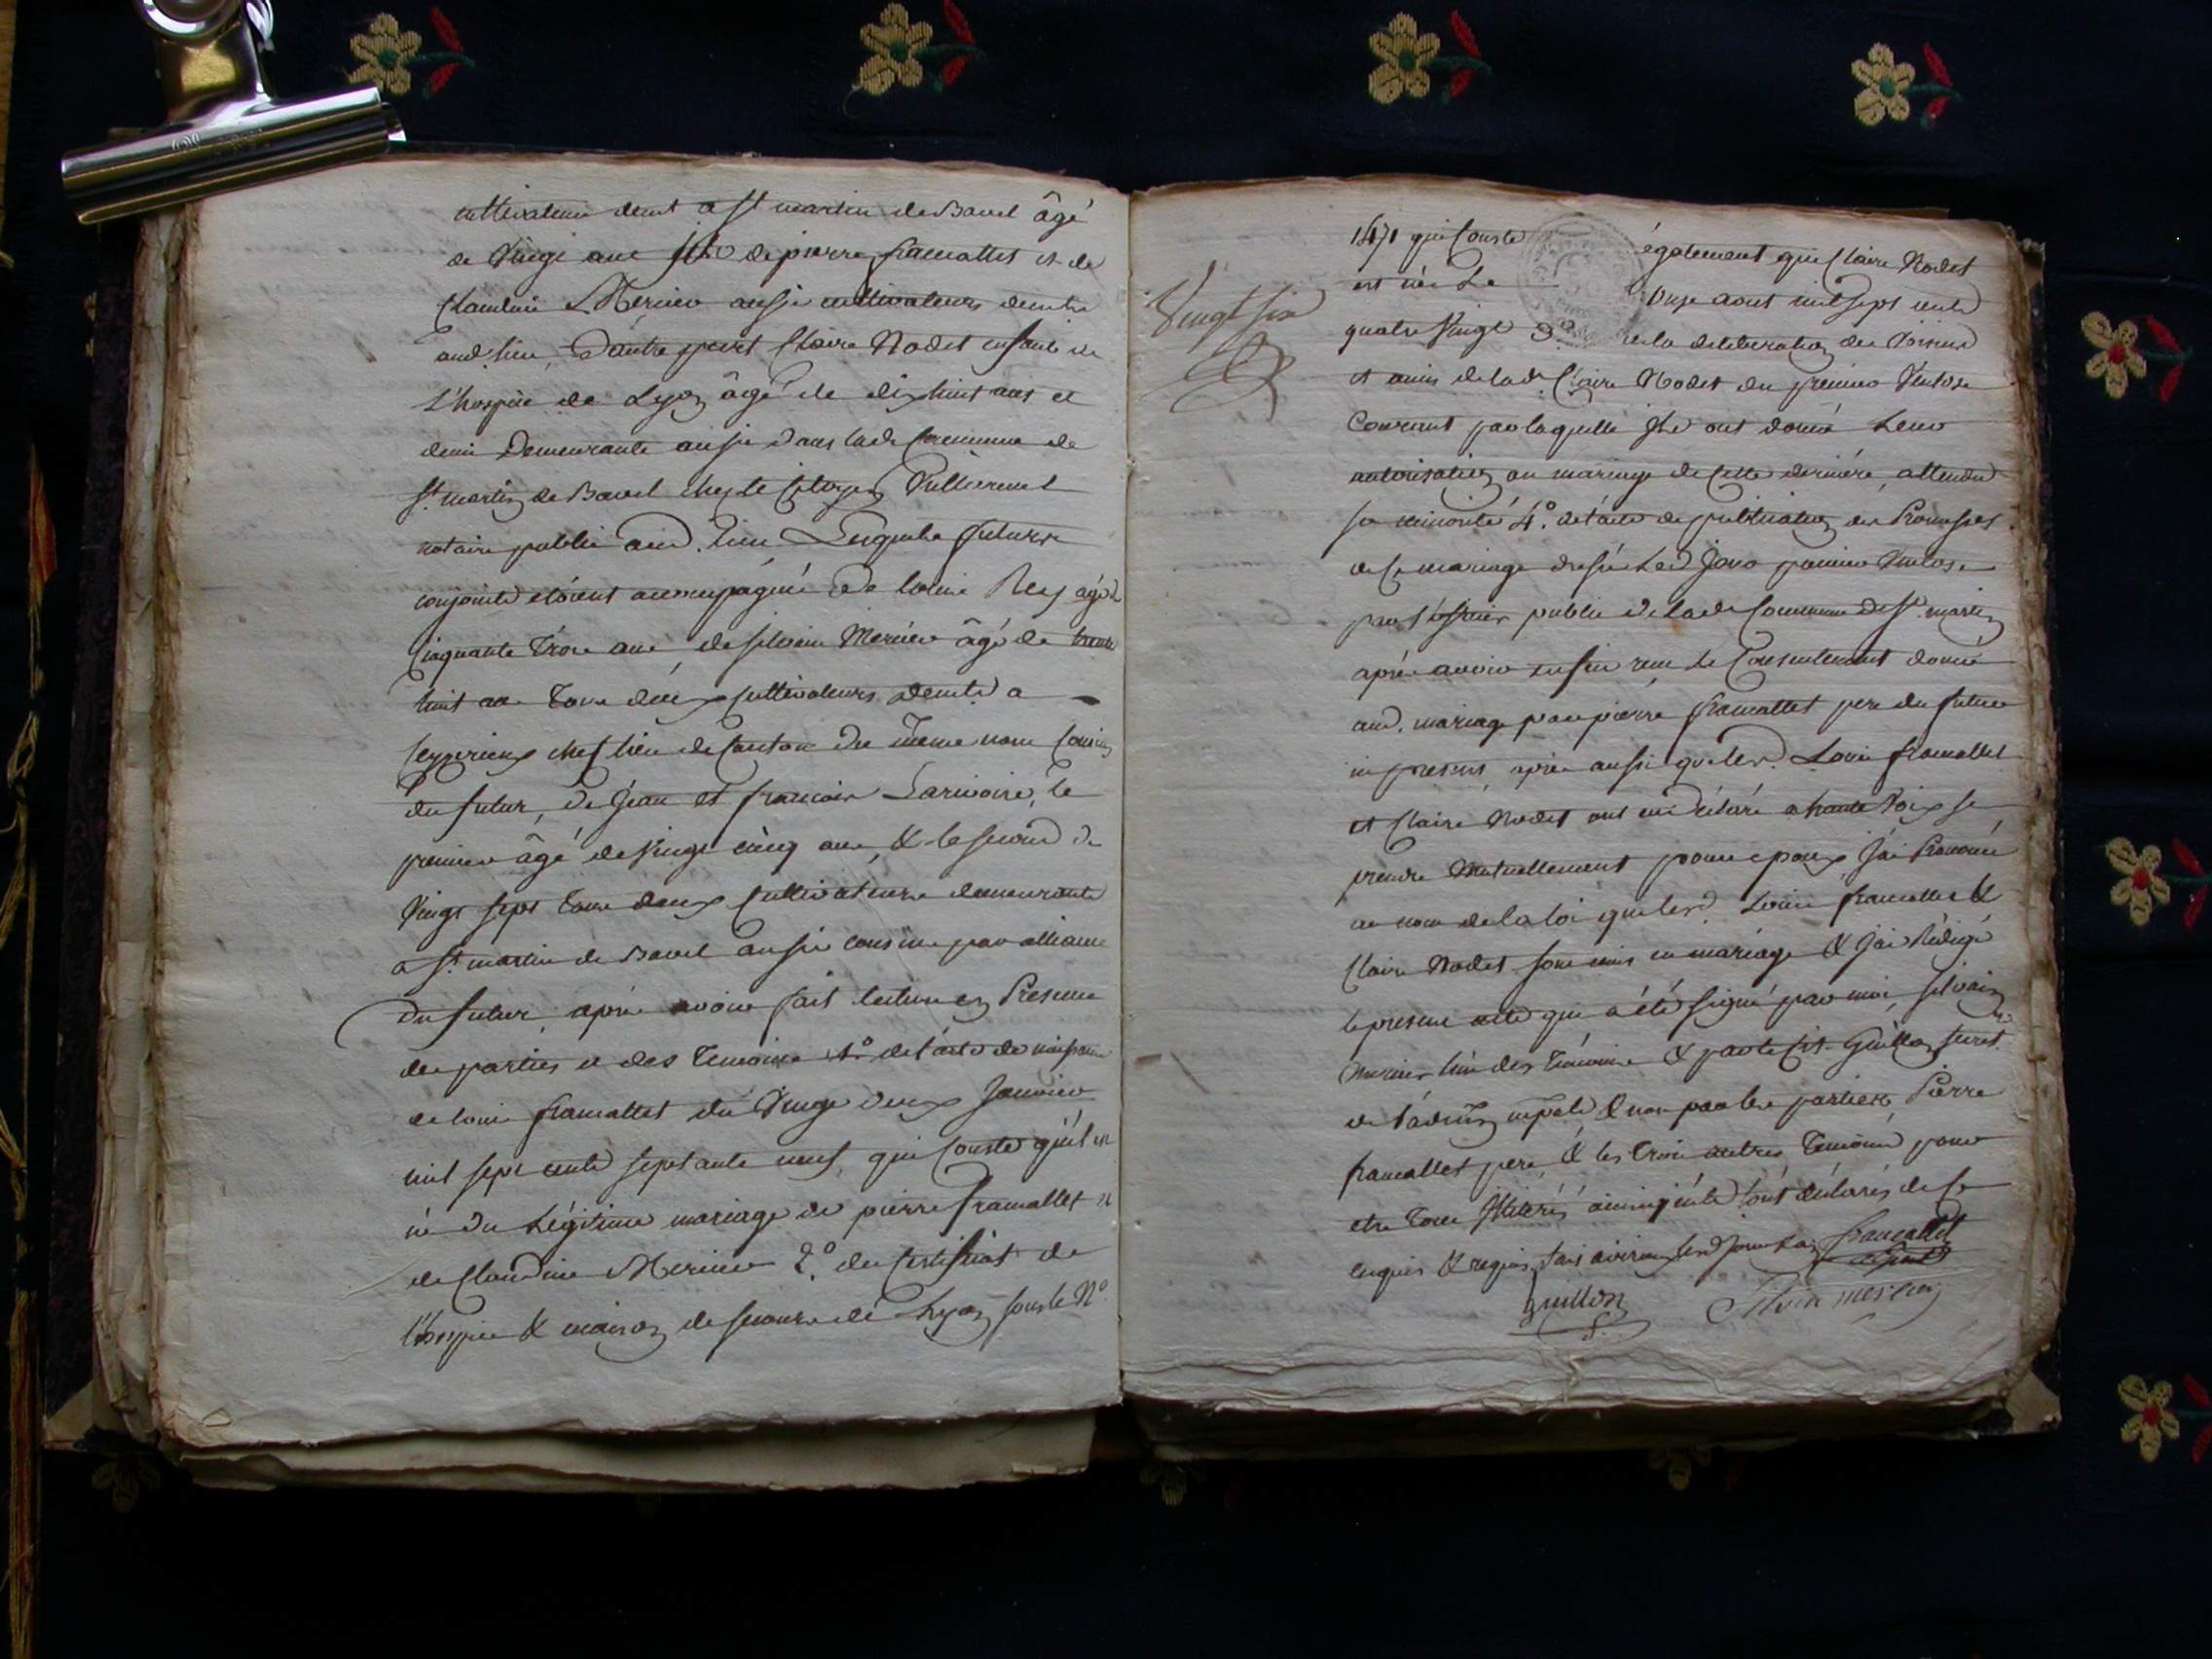 cultivateur demt a st martin de Bavel âgé
de Vingt ans fils de pierre framallet et de
Claudine Mercier aussi cultivateurs demts
aud. lieu, D'autre part Claire Nodet enfant de
L'hospice de Lyon âgé de dix huit ans et
demi Demeurante aussi dans lade Commune de
St. martin de Bavel chez le Citoyen Vullierme
notaire public aud. lieu Lesquels futurs
conjoints etoient accompagné de louis Rey agé de
Cinquante Trois ans de silvain Mercier âgé de trente
huit ans tous deux cultivateurs Demts a
Ceyzerieux chef lieu de Canton du meme nom Cousins
du futur, De Jean et francois Larivoire, le
premier âgé de Vingt cinq ans, & le second de
Vingt sept tous deux Cultivateurs demeurants
a St. martin de Bavel aussi cousins par alliance
Du futur, apres avoir fait lecture en Presence
des parties et des Temoins 1.º de l'acte de naissance
de louis framallet du Vingt Deux Janvier
mil sept cents septante neuf, qui Conste qu'il est
né Du Légitime mariage de pierre framallet et
de Claudine Mercier 2.º du Certificat de
l'hospice & maison de secours de Lyon sous le Nº.
1471 qui Conste également que Claire Nodet
est née Le onze aout mil sept cents
quatre Vingt 3º de la deliberation des Voisins
et amis de lade Claire Nodet du premier Ventose
Courant par laquelle Ils ont donné Leur
autorisation au mariage de cette derniére, attendu
sa minorité 4.º de l'acte de publication des Promesses
de ce mariage dressé led Jour premier Ventose
par l'officier public de lade Commune de St. martin
aprés avoir enfin recu le Consentement donné
aud. mariage par pierre framallet pere du futur
ici present, aprés aussi que lesd. Louis framallet
et Claire Nodet ont eu déclaré a haute Voix se
prendre Mutuellement pour epoux J'ai Prononcé
au nom de la loi que lesd. Louis framallet &
Claire Nodet sont unis en mariage & J'ai Rédigé
le present acte qui a été signé par moi, silvain
Mercier l'un des témoins & par le Cit. Guillon secret.re
de l'adm.on mpale & non par les parties, Pierre
framallet pere & les trois autres Temoins pour
etre tous Illiterés ainsi qu'ils l'ont déclarés de ce
enquis & requis, fait a led jour & an framallet
Guillon Silvin mercier
Vingt six